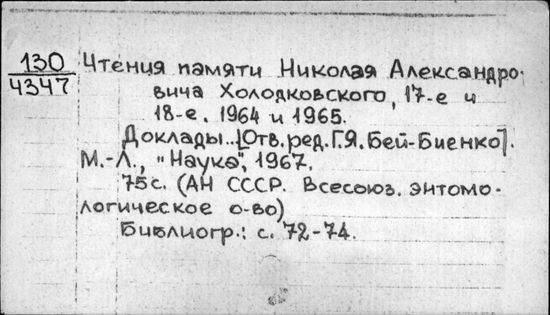 130
4347
Чтения памяти Николая Александро-
вича Холодковского, 17-е и
18-е. 1964 и 1965.
Доклады...[Отв.ред.Г.Я.Бей-Биенко].
М.-Л., "Наука", 1967.
75с. (АН СССР. Всесоюз. энтомо-
логическое о-во)
Библиогр.: с. 72-74.